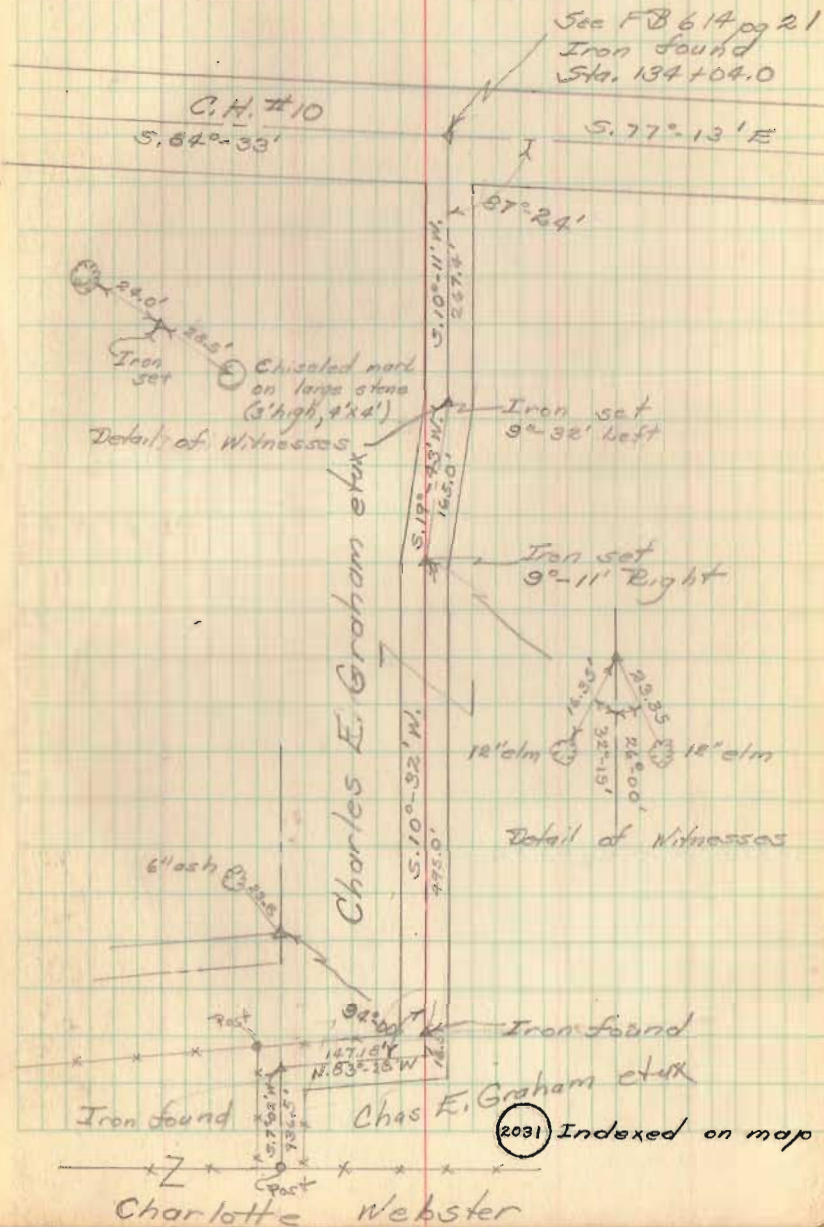 See FB 614 pg 21
Iron found
Sta. 134+04.0
C.H. #10
S. 84°-33'
S. 77°-13' E
87°-24'
S. 10°-11' W.
267.4'
24.0'
28.5'
Iron
set
Chiseled mark
on large stone
(3' high, 4'x4')
Detail of Witnesses
Iron set
9°-32' Left
S. 19°-43' W.
165.0'
Iron set
9°-11' Right
Charles E. Graham etux
16.35'
23.35
12" elm
32°-15'
26°-00'
12" elm
Detail of Witnesses
S. 10°-32' W.
495.0'
6" ash
23.8
Post
94°-00'
Iron found
147.18'
N. 83°-28' W
16.5'
Iron found
S. 7°-02' W.
936.5'
Chas E. Graham etux
2031 Indexed on map
Post
Charlotte Webster